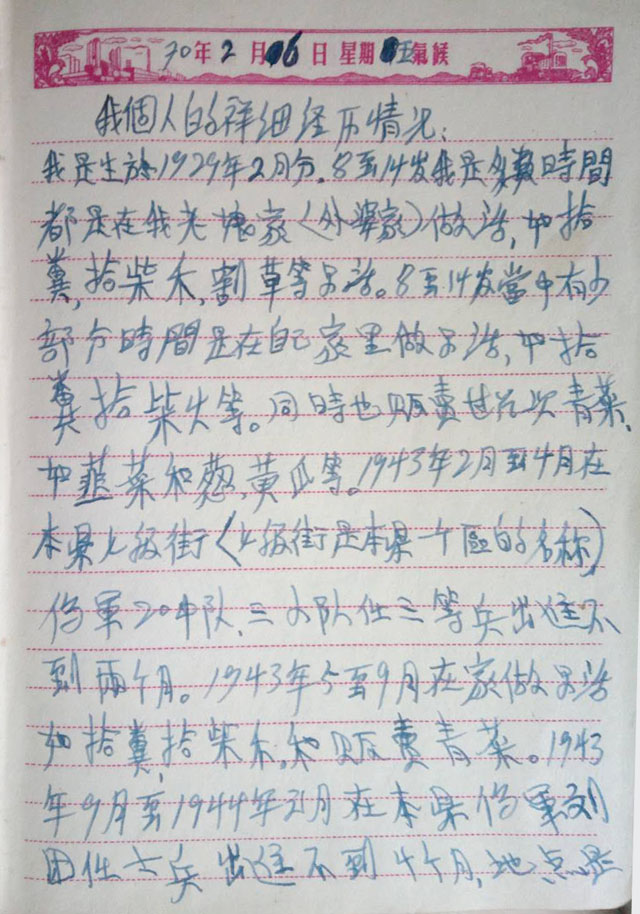 70年2月6日 星期 氣候
我個人的祥细经历情况:
我是生於1929年2月分.8至14岁我是多数時間
都是在我老娘家(外婆家)做活,如拾
糞,拾柴禾,割草等另活。8至14岁當中有少
部分時間是在自己家里做另活,如拾
糞拾柴火等。同時也贩賣过几次青菜、
如韮菜和葱,黄瓜等。1943年2月至4月在
本県上级街(上级街是本県个區的名称)
伪軍20中队,三小队任三等兵出進不
到兩个月。1943年5至9月在家做另活
如拾糞,拾柴禾,和贩賣青菜。1943
年9月至1944年 月在本県伪軍
团任 兵出進不到4个月,地点是